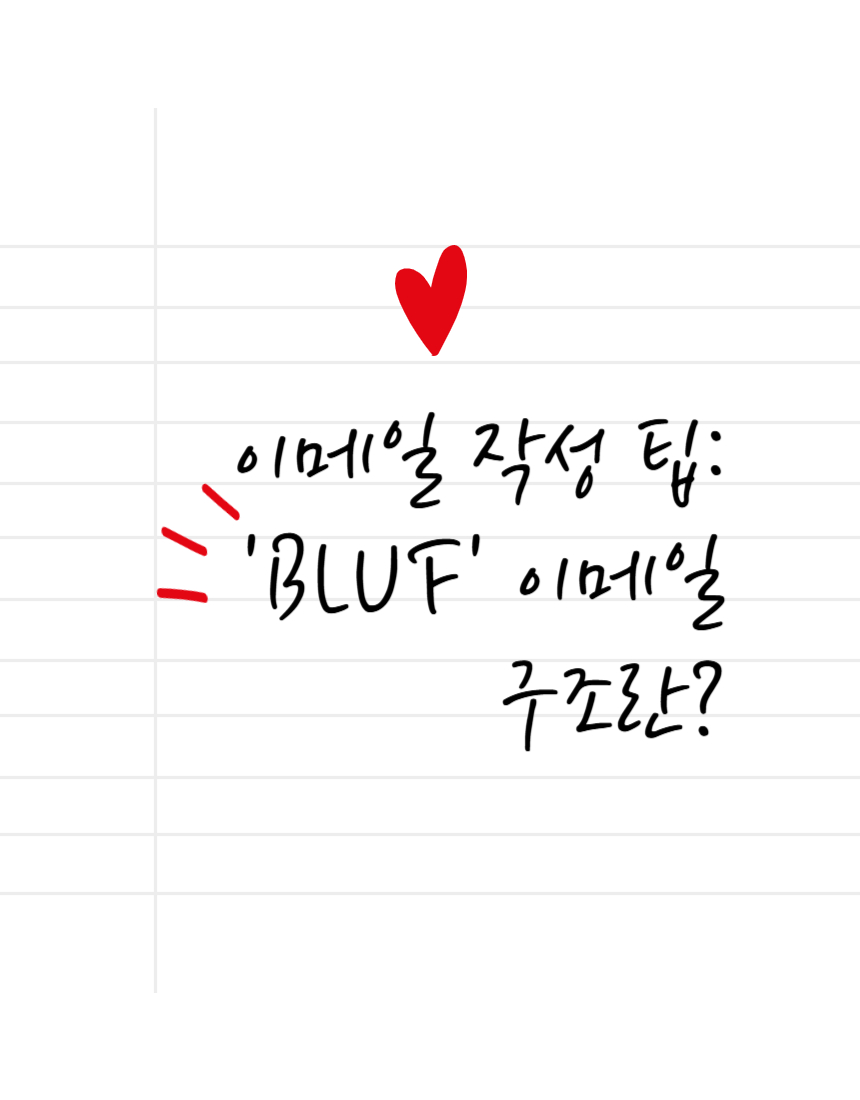 이메일 작성 팁:
'BLUF' 이메일
구조란?